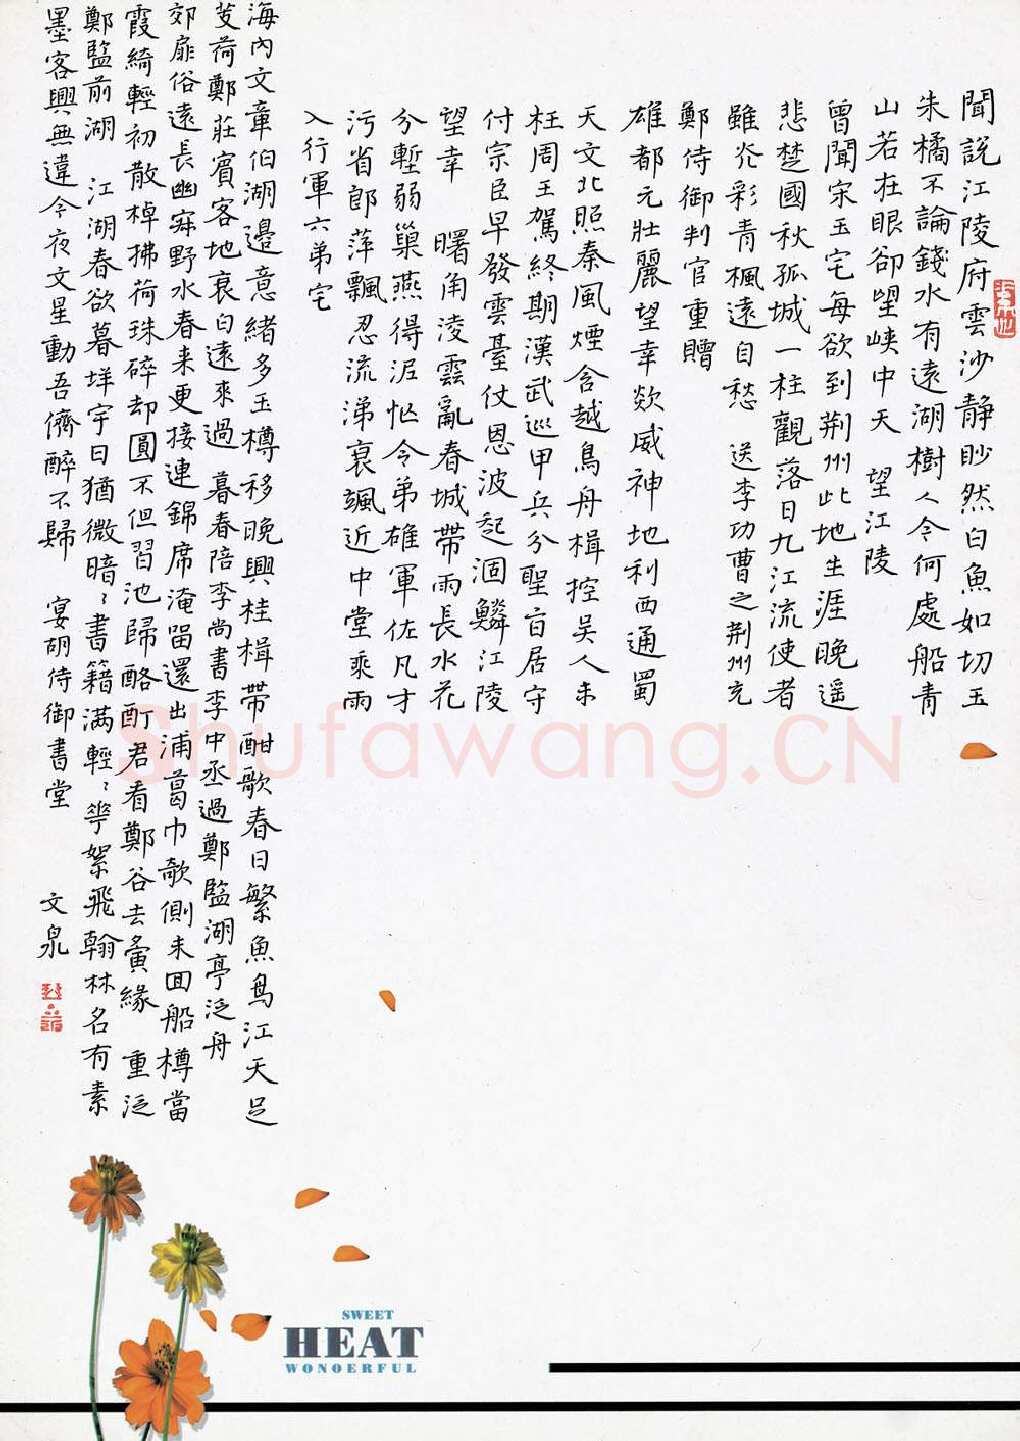 聞說江陵府雲沙靜眇然白魚如切玉
朱橘不論錢水有遠湖樹人今何處船青
山若在眼卻望峽中天 望江陵
曾聞宋玉宅每欲到荆州此地生涯晚遥
悲楚國秋孤城一柱觀落日九江流使者
雖光彩青楓遠自愁 送李功曹之荆州充
鄭侍御判官重贈
雄都元壯麗望幸欻威神地利西通蜀
天文北照秦風煙含越鳥舟楫控吳人未
枉周王駕終期漢武巡甲兵分聖旨居守
付宗臣早發雲臺仗恩波起涸鱗江陵
望幸 曙角淩雲亂春城帶雨長水花
分塹弱巢燕得泥忙令弟雄軍佐凡才
污省郎萍飄忍流涕衰颯近中堂乘雨
入行軍六弟宅
海內文章伯湖邊意緒多玉樽移晚興桂楫帶酣歌春日繁魚鳥江天足
芰荷鄭莊賓客地衰白遠來過 暮春陪李尚書李中丞過鄭監湖亭泛舟
郊扉俗遠長幽寂野水春来更接連錦席淹留還出浦葛巾欹側未回船樽當
霞綺輕初散棹拂荷珠碎却圓不但習池歸酩酊君看鄭谷去夤緣 重泛
鄭監前湖 江湖春欲暮墻宇日猶微暗〻書籍满輕〻花絮飛翰林名有素
墨客興無違今夜文星動吾儕醉不歸 宴胡侍御書堂
文泉
Shufawang.CN
SWEET
HEAT
WONOERFUL